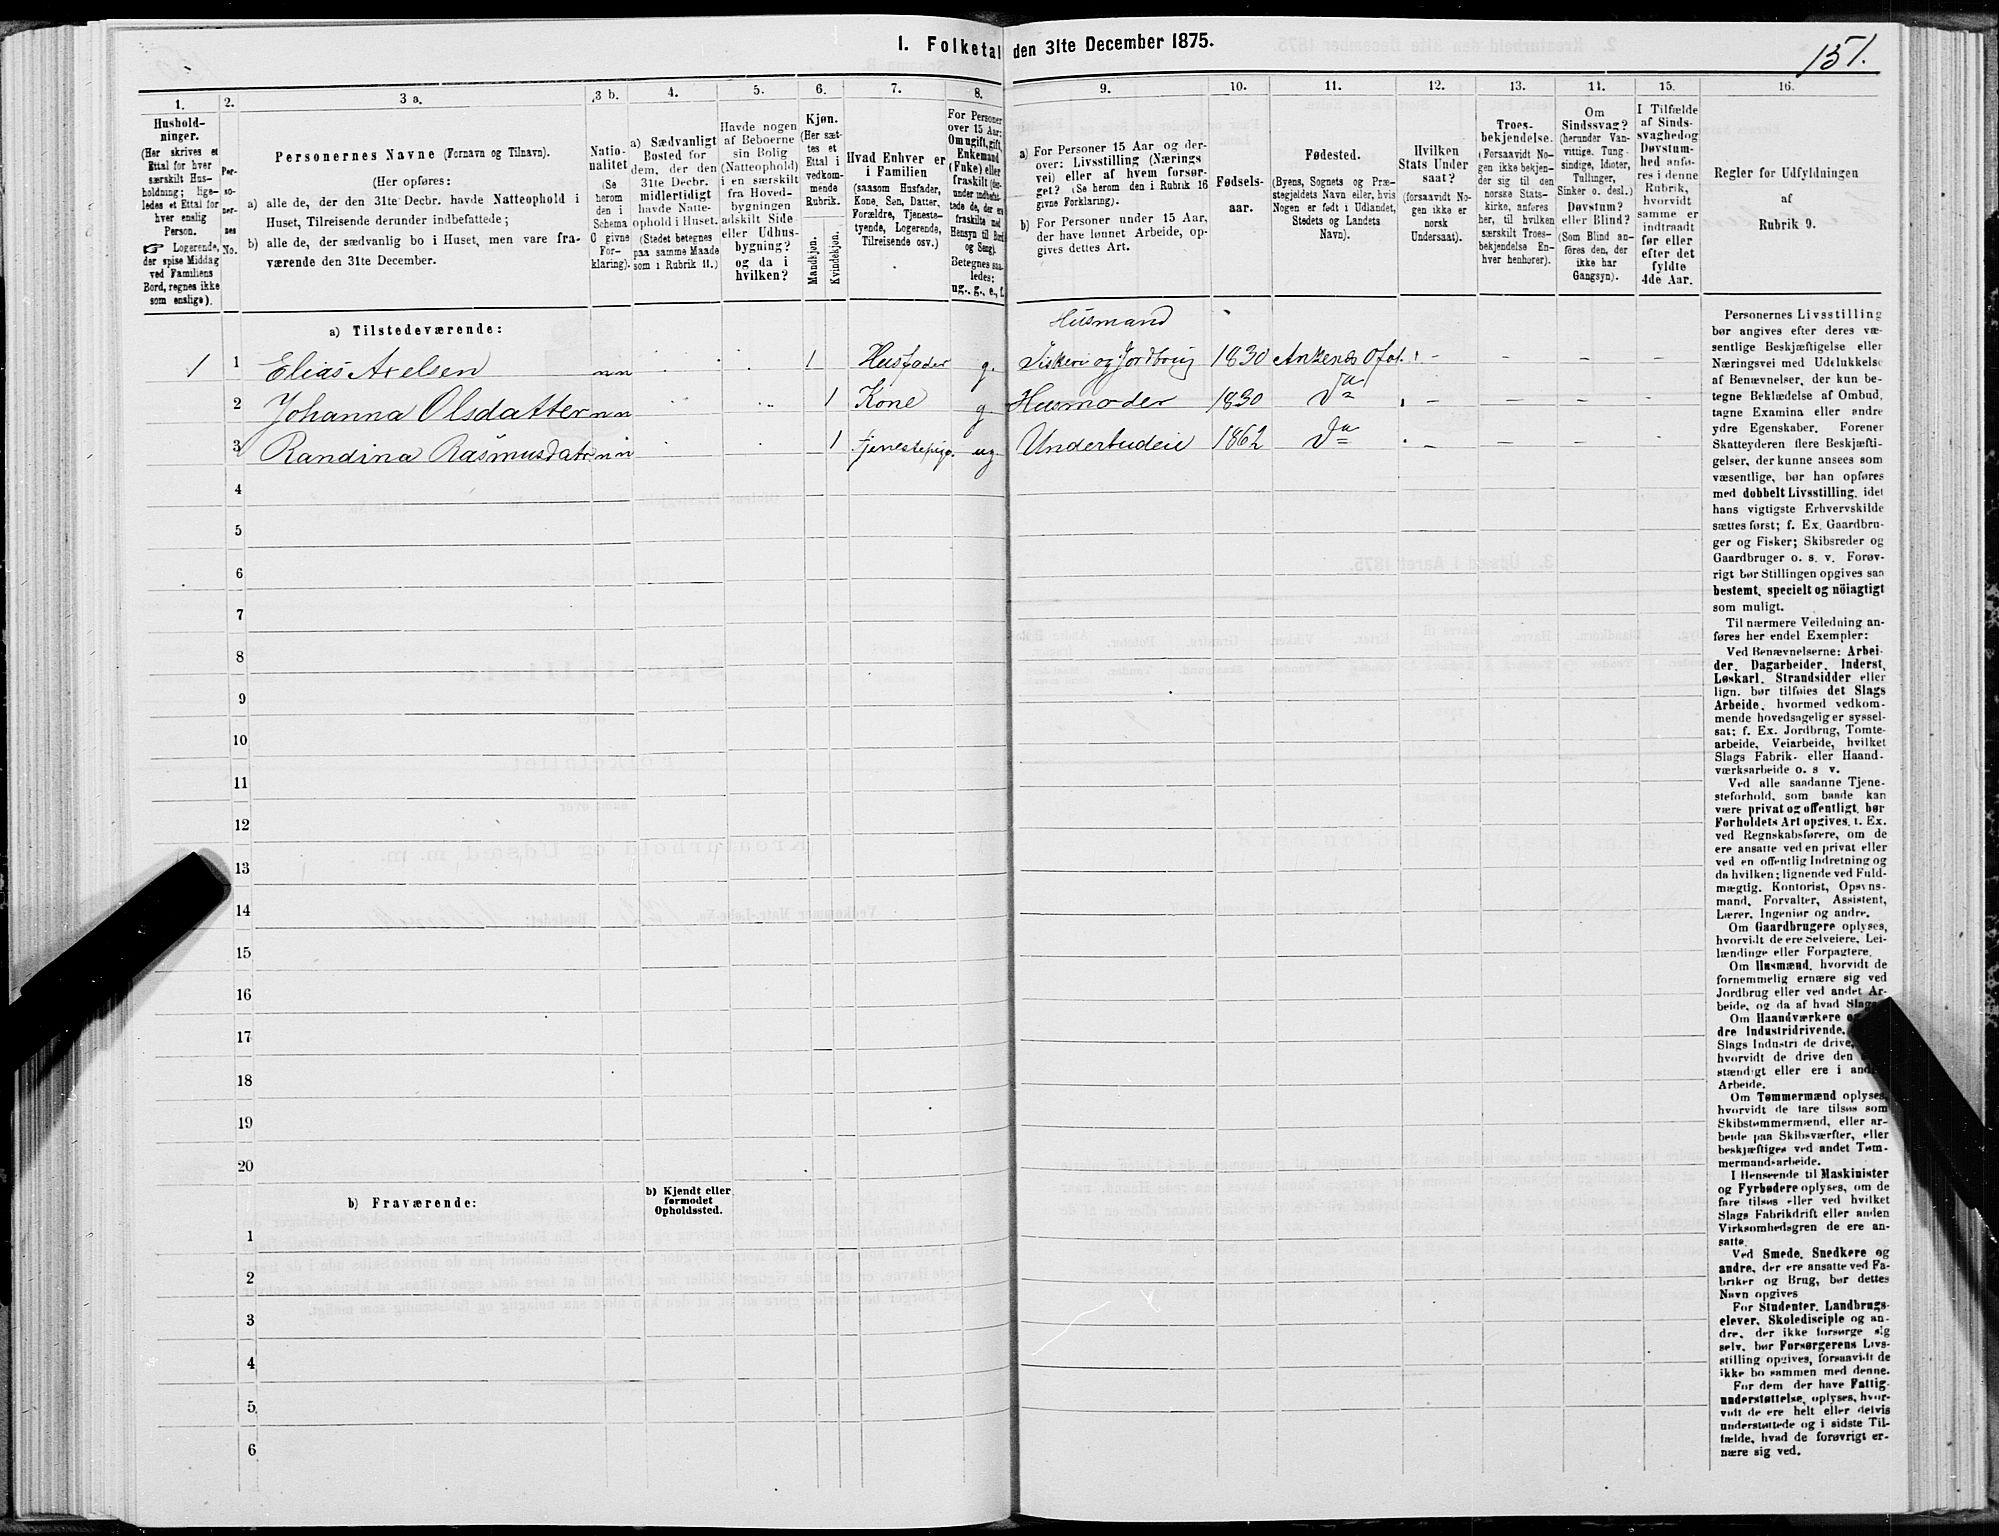 1. Folketal den 31te December 1875.
151.
1.
Hushold-
ninger.
(Her skrives et
Ettal for hver
særskilt Hus-
holdning; lige-
ledes et Ettal for
hver enslig
Person.
☞ Logerende,
der spise Middag
ved Familiens
Bord, regnes ikke
som enslige).
2.
Per-
so-
ner-
nes
No.
3 a.
Personernes Navne (Fornavn og Tilnavn).
(Her opføres:
a) alle de, der den 31te Decbr. havde Natteophold i
Huset, Tilreisende derunder indbefattede;
b) alle de, der sædvanlig bo i Huset, men vare fra-
værende den 31te December.
3 b.
Natio-
nalitet
(Se
herom
den i
Schema
C givne
For-
klaring).
4.
a) Sædvanligt
Bosted for
dem, der den
31te Decbr.
midlertidigt
havde Natte-
ophold i Huset.
(Stedet betegnes
paa samme Maade
som i Rubrik 11.)
5.
Havde nogen
af Beboerne
sin Bolig
(Natteophold)
i en særskilt
fra Hoved-
bygningen
adskilt Side
eller Udhus-
bygning?
og da i
hvilken?
6.
Kjøn.
(Her sæt-
tes et
Ettal i
vedkom-
mende
Rubrik.
Mandkjøn.
Kvindekjøn.
7.
Hvad Enhver er
i Familien
(saasom Husfader,
Kone, Søn, Datter,
Forældre, Tjeneste-
tyende, Logerende,
Tilreisende osv.)
8.
For Personer
over 15 Aar:
Om ugift, gift,
Enkemand
(Enke) eller
fraskilt (der-
under indbefat-
tede de, der ere
fraskilte med
Hensyn til Bord
og Seng).
Betegnes saa-
ledes:
ug., g., e., f.
9.
a) For Personer 15 Aar og der-
over: Livsstilling (Nærings
vei) eller af hvem forsør-
get? (Se herom den i Rubrik 16
givne Forklaring).
b) For Personer under 15 Aar,
der have lønnet Arbeide, op-
gives dettes Art.
10.
Fødsels-
aar.
11.
Fødested.
(Byens, Sognets og Præ-
stegjeldets Navn eller, hvis
Nogen er født i Udlandet,
Stedets og Landets
Navn).
12.
Hvilken
Stats Under
saat?
(forsaavidt No-
gen ikke er
norsk
Undersaat).
13.
Troes-
bekjendelse.
(Forsaavidt No-
gen ikke bekjen-
der sig til den
norske Stats-
kirke, anføres
her, til hvilken
særskilt Troes-
bekjendelse En-
hver henhører).
14.
Om
Sindssvag?
(herunder Van-
vittige, Tung
sindige, Idioter,
Tullinger,
Sinker o. desl.)
Døvstum?
eller Blind?
(Som Blind an-
føres den, der
ikke har
Gangsyn).
15.
I Tilfælde
af Sinds-
svaghed og
Døvstum-
hed anfø-
res i denne
Rubrik,
hvorvidt
samme er
indtraadt
før eller
efter det
fyldte
4de Aar.
16.
Regler for Udfyldningen
af
Rubrik 9.
a) Tilstedeværende:
Husmand
1 1 Elias Axelsen n n 1 Husfader g. Fiskeri og Jordbrug 1830 Ankenes Ofot. - - - -
2 Johanna Olsdatter n n 1 Kone g. Husmoder 1830 Do - - - -
3 Randina Rasmusdatr n n 1 Tjenestepige ug. Underbudeie 1862 Do - - - -
4
5
6
7
8
9
10
11
12
13
14
15
16
17
18
19
20
b) Fraværende:
b) Kjendt eller
formodet
Opholdssted.
1
2
3
4
5
6
Personernes Livsstilling
bør angives efter deres væ-
sentlige Beskjæftigelse eller
Næringsvei med Udelukkelse
af Benævnelser, der kun be-
tegne Beklædelse af Ombud,
tagne Examina eller andre
ydre Egenskaber. Forener
Skatteyderen flere Beskjæfti-
gelser, der kunne ansees som
væsentlige, bør han opføres
med dobbelt Livsstilling, idet
hans vigtigste Erhvervskilde
sættes først; f. Ex. Gaardbru-
ger og Fisker; Skibsreder og
Gaardbruger o. s. v. Forøv-
rigt bør Stillingen opgives saa
bestemt, specielt og nöiagtigt
som muligt.
Til nærmere Veiledning an-
føres her endel Exempler:
Ved Benævnelserne: Arbei-
der, Dagarbeider, Inderst,
Løskarl, Strandsidder eller
lign. bør tilføies det Slags
Arbeide, hvormed vedkom-
mende hovedsagelig er syssel-
sat; f. Ex. Jordbrug, Tomte-
arbeide, Veiarbeide, hvilket
Slags Fabrik- eller Haand-
værksarbeide o. s v.
Ved alle saadanne Tjene-
steforhold, som baade kan
være privat og offentligt, bør
Forholdets Art opgives, f. Ex.
ved Regnskabsførere, om de
ere ansatte ved en privat eller
ved en offentlig Indretning og
da hvilken; lignende ved Fuld-
mægtig, Kontorist, Opsyns-
mand, Forvalter, Assistent,
Lærer, Ingeniør og andre.
Om Gaardbrugere oplyses,
hvorvidt de ere Selveiere, Lei-
lændinge eller Forpagtere.
Om Husmænd, hvorvidt de
fornemmelig ernære sig ved
Jordbrug eller ved andet Ar-
beide, og da af hvad Slags.
Om Haandværkere o
dre Industridrivende,
Slags Industri de drive,
hvorvidt de drive den
stændigt eller ere i and
Arbeide.
Om Tømmermænd oplyses,
hvorvidt de fare tilsøs som
Skibstømmermænd, eller ar-
beide paa Skibsværfter, eller
beskjæftiges ved andet Tøm-
mermandsarbeide.
I Henseende til Maskinister
og Fyrbødere oplyses, om de
fare tilsøs eller ved hvilket
Slags Fabrikdrift eller anden
Virksomhedsgren de ere an-
satte.
Ved Smede, Snedkere og
andre, der ere ansatte ved Fa-
briker og Brug, bør dettes
Navn opgives
For Studenter, Landbrugs-
elever, Skoledisciple og an-
dre, der ikke forsørge sig
selv, bør Forsørgerens Livs-
stilling opgives, forsaavidt de
ikke bo sammen med denne.
For dem der have Fattig-
understøttelse, oplyses, hvor-
vidt de ere helt eller delvis
understøttede og i sidste Til-
fælde, hvad de forøvrigt er-
nære sig ved.